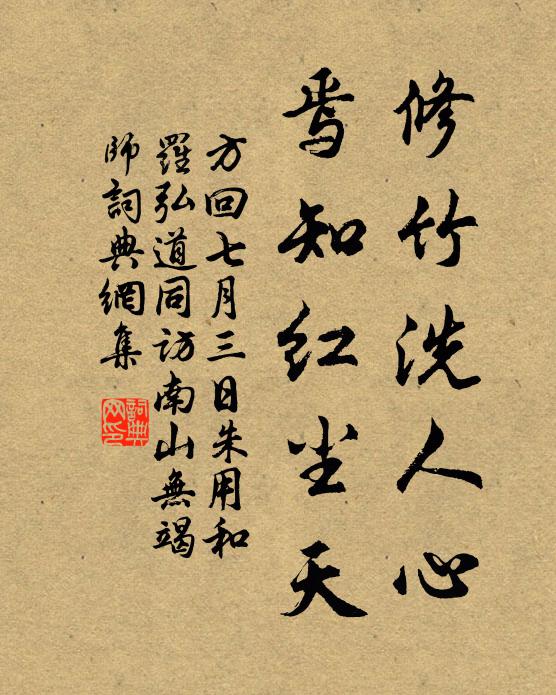 修竹洗人心
焉知红尘天
方回七月三日朱用和
羅弘道同访南山無竭
師詞典網集
詞典
网印